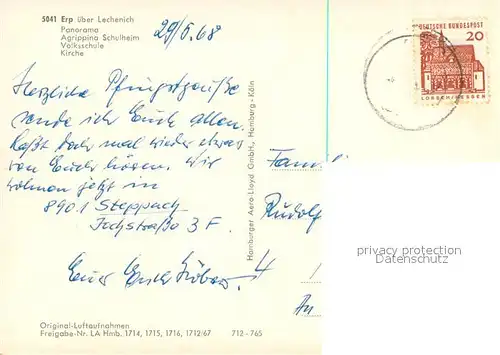 5041 Erp über Lechenich
Panorama
Agrippina Schulheim
Volksschule
Kirche
29/5.68
Herzliche Pfingstgrüße
sende ich Euch allen.
Laßt doch mal wieder etwas
von Euch hören. Wir
wohnen jetzt in
8901 Steppach
3 F.
Euer
Original-Luftaufnahmen
Freigabe-Nr. LA Hmb. 1714, 1715, 1716, 1712/67 712-765
Hamburger Aero-Lloyd GmbH., Hamburg-Köln
DEUTSCHE BUNDESPOST
20
LORSCH/HESSEN
Fam
Rudolf
An
privacy protection
Datenschutz